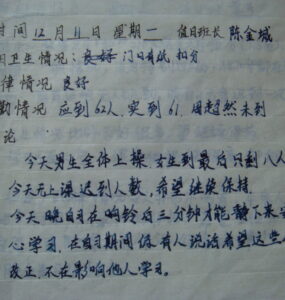 时间 12月11日 星期一 值日班长 陈金城
卫生情况：良好 门口有纸 扣分
律情况 良好
勤情况 应到62人，实到61，周超然未到
论
今天男生全体上操 女生到最后只剩八人
今天无上课迟到人数，希望继续保持．
今天晚自习在响铃后三分钟才能静下来
心学习．在自习期间仍有人说话希望这些人
改正．不在影响他人学习。